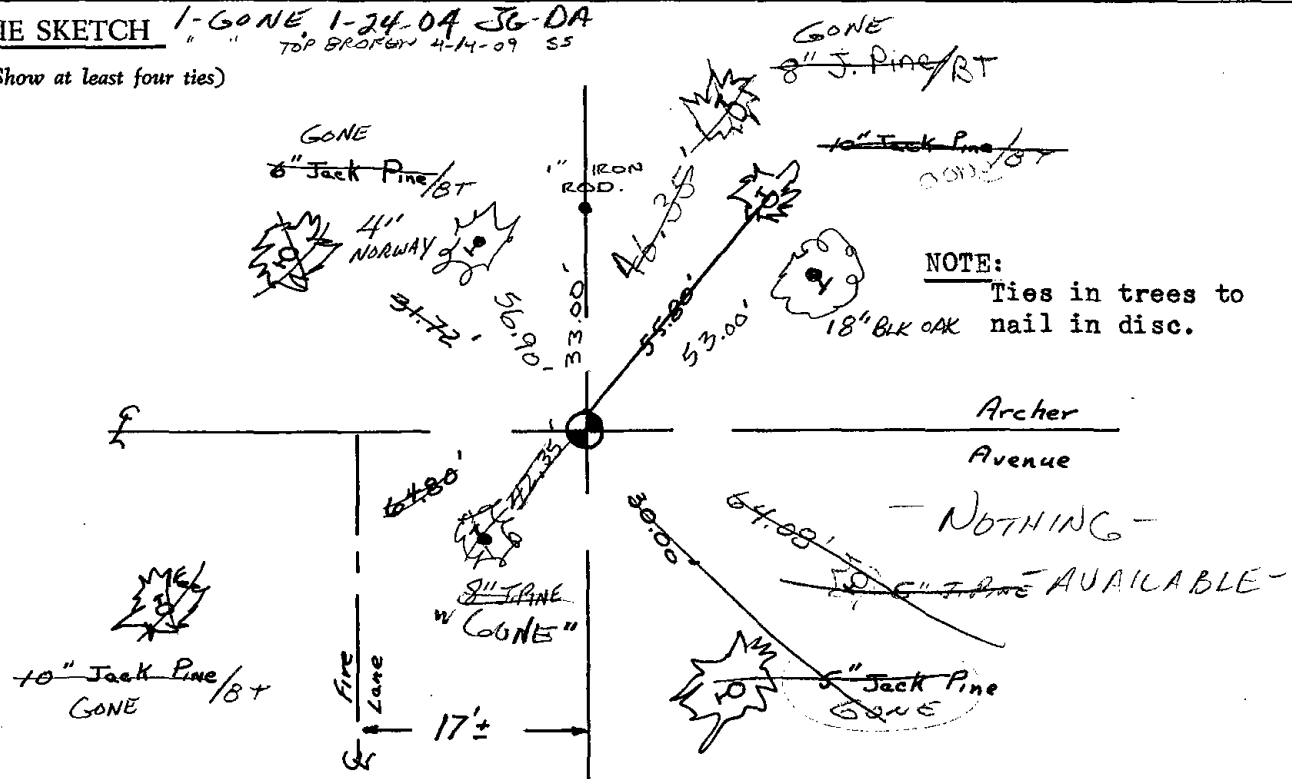 HE SKETCH 1-GONE 1-24-04 JG-DA
" " TOP BROKEN 4-14-09 SS
Show at least four ties)
GONE
8" J. Pine/BT
GONE
6" Jack Pine/BT
1" IRON
ROD.
10" Jack Pine/BT
GONE
4"
NORWAY
46.35'
NOTE:
Ties in trees to
nail in disc.
18" BLK OAK
31.72'
56.90'
33.00'
55.80'
53.00'
Archer
Avenue
64.80'
42.35'
30.00
64.08'
- NOTHING -
6" J. PINE - AVAILABLE -
8" J. PINE
"GONE"
10" Jack Pine/BT
GONE
Fire
Lane
17'±
5" Jack Pine
GONE